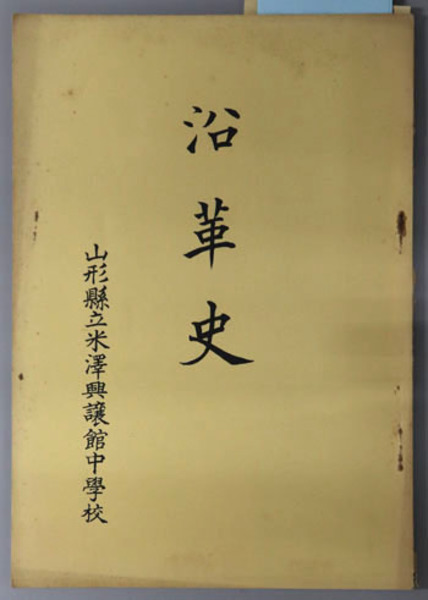 沿革史
山形縣立米澤興讓館中學校